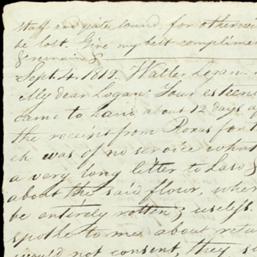 staff and quite sound for otherwi
be lost. Give my best complimen
& remain
Sept. 4. 1812. Walter Logan.
My dear Logan. Your esteem
came to hand about 12 days a
the receipt from Ross for t
ck was of no service what
a very long letter to Law
about the said flour, wher
be entirely rotten, useless
spoke to me about retu
would not consent, they s